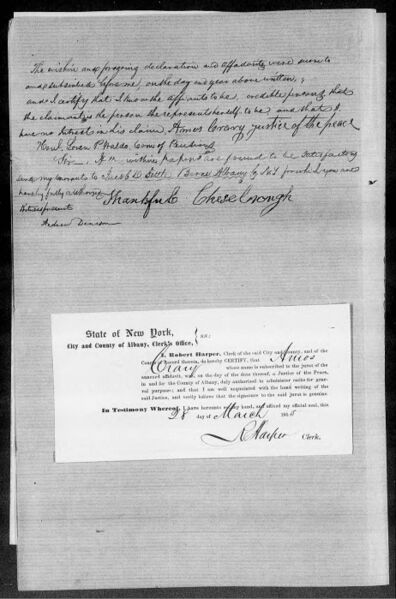 The within and foregoing declaration and affidavits were sworn to
and subscribed before me, on the day and year above written,
and I certify that I know the affiants to be credible persons, that
the claimant is the person she represents herself to be and that I
have no interest in his claim, Amos Crary justice of the peace
Hon. Loren P Waldo Com of Pensions
Sir If the within papers are found to be satisfactory
send my warrants to Albany N.Y for which you are
hereby fully authorised
Thankful Chesebrough
Witness present
Andrew Denison
State of New York,
City and County of Albany, Clerk's Office, ss:
I, Robert Harper, Clerk of the said City and County, and of the
County Court of Record therein, do hereby CERTIFY, that Amos
Crary whose name is subscribed to the jurat of the
annexed affidavit, was, on the day of the date thereof, a Justice of the Peace,
in and for the County of Albany, duly authorized to administer oaths for general
purpose; and that I am well acquainted with the hand writing of the
said Justice, and verily believe that the signature to the said jurat is genuine.
In Testimony Whereof, I have hereunto set my hand, and affixed my official seal, this
28 day of March 185
R Harper Clerk.